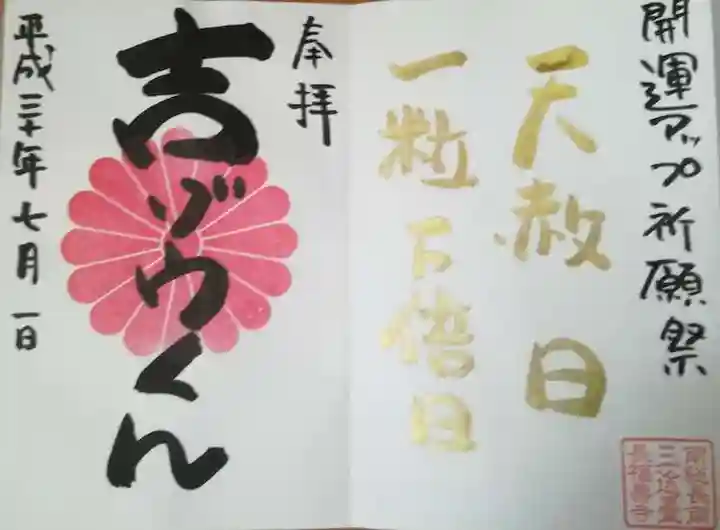 開運アップ祈願祭
天赦日
一粒万倍日
奉拝
吉ゾウくん
平成三十年七月一日